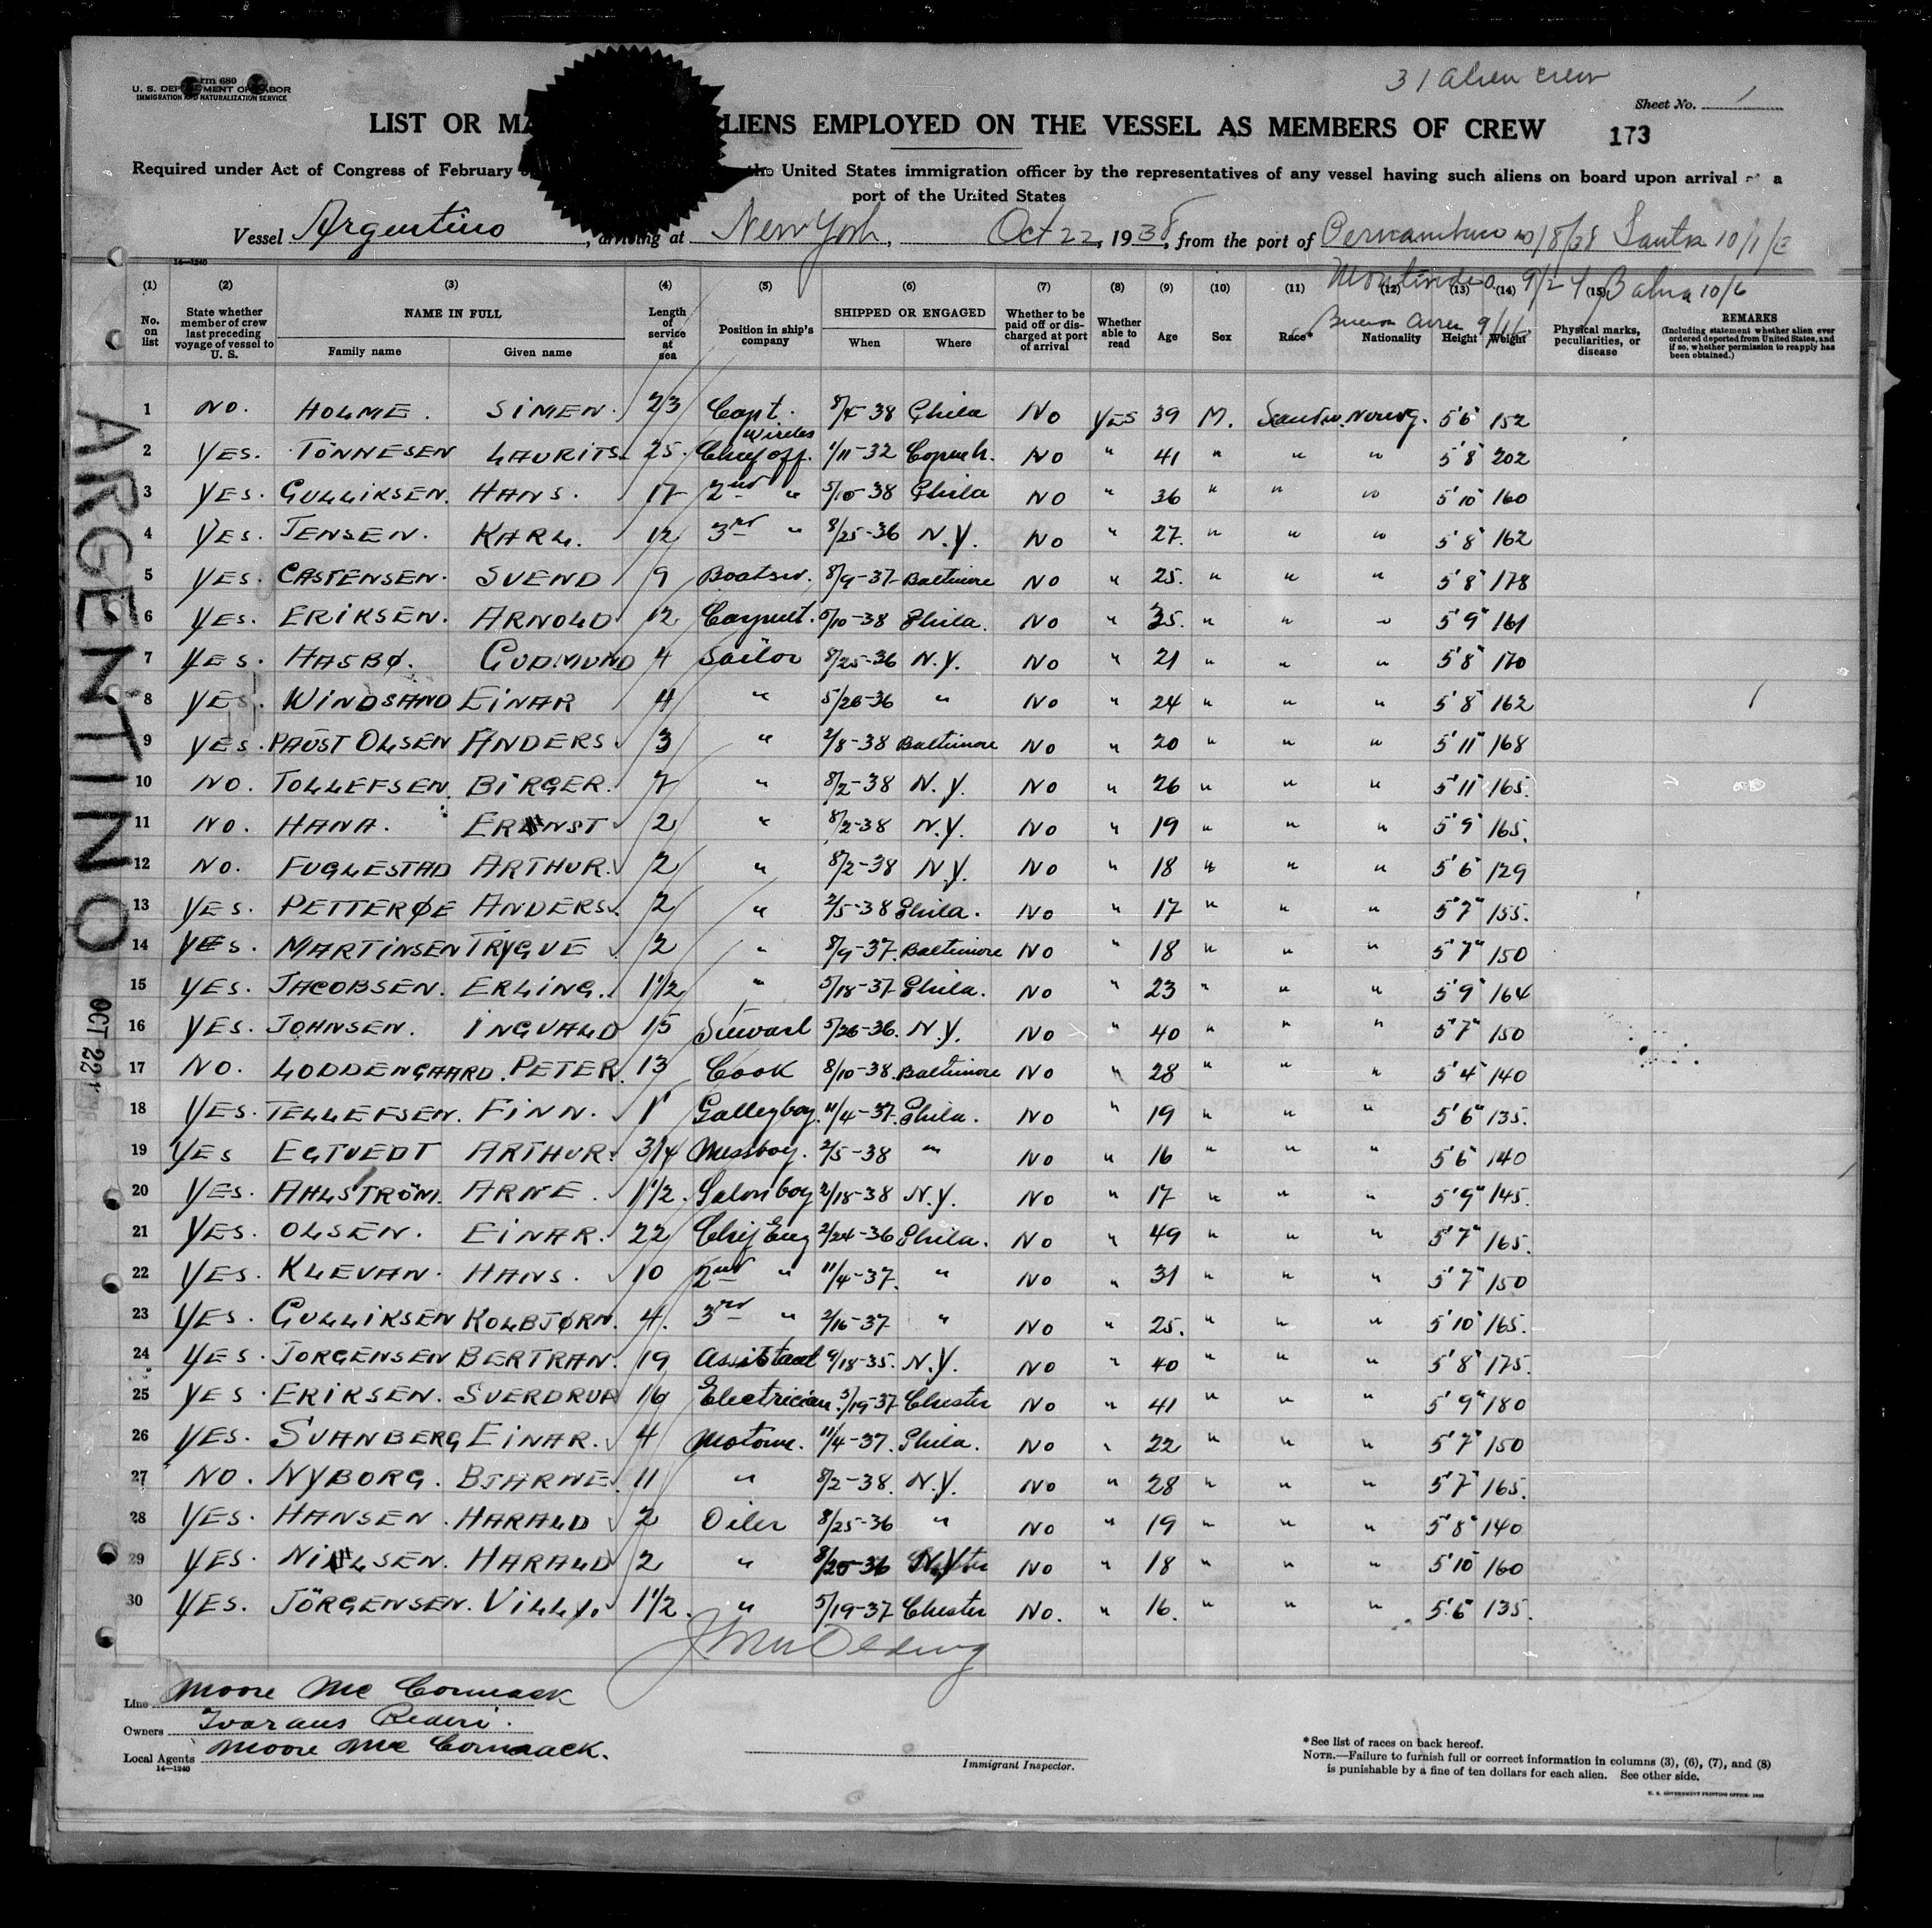 31 alien crew
rm 680
U. S. DEP MENT OF LABOR
IMMIGRATION AND NATURALIZATION SERVICE
Sheet No. 1
LIST OR MA LIENS EMPLOYED ON THE VESSEL AS MEMBERS OF CREW
173
Required under Act of Congress of February the United States immigration officer by the representatives of any vessel having such aliens on board upon arrival at a
port of the United States
Vessel Argentino, arriving at New York, Oct 22, 1938, from the port of Pernambuco 10/8/38 Santos 10/1/
Montevideo 9/24 Bahia 10/6
Buenos Aires 9/
14—1240
(1) (2) (3) (4) (5) (6) (7) (8) (9) (10) (11) (12) (13) (14) (15)
No. on list
State whether member of crew last preceding voyage of vessel to U. S.
NAME IN FULL
Family name Given name
Length of service at sea
Position in ship's company
SHIPPED OR ENGAGED
When Where
Whether to be paid off or discharged at port of arrival
Whether able to read
Age
Sex
Race*
Nationality
Height
Weight
Physical marks, peculiarities, or disease
REMARKS
(Including statement whether alien ever ordered deported from United States, and if so, whether permission to reapply has been obtained.)
1 NO. HOLME. SIMEN. 23 Capt. 8/5-38 Phila NO YES 39 M. Scandin. Norwg. 5'6" 152
Wireles
2 YES. TÖNNESEN LAURITS 25. Chief off. 1/11-32 Copenh. NO " 41 " " " 5'8" 202
3 YES. GULLIKSEN. HANS. 17 2nd " 5/10-38 Phila NO " 36 " " " 5'10" 160
4 YES. JENSEN. KARL. 12 3rd " 8/25-36 N.Y. NO " 27. " " " 5'8" 162
5 YES. CASTENSEN. SVEND 9 Boatsw. 8/9-37 Baltimore NO " 25. " " " 5'8" 178
6 YES. ERIKSEN. ARNOLD 12 Carpent. 5/10-38 Phila. NO " 35. " " " 5'9" 161
7 YES. HASBØ. GUDMUND 4 Sailor 8/25-36 N.Y. NO " 21 " " " 5'8" 170
8 YES. WINDSAND EINAR 4 " 5/26-36 " NO " 24 " " " 5'8" 162
9 YES. PAUST OLSEN ANDERS 3 " 2/8-38 Baltimore NO " 20 " " " 5'11" 168
10 NO. TOLLEFSEN. BIRGER. 7 " 8/2-38 N.Y. NO " 26 " " " 5'11" 165.
11 NO. HANA. ERNST 2 " 8/2-38 N.Y. NO " 19 " " " 5'9" 165.
12 NO. FUGLESTAD ARTHUR. 2 " 8/2-38 N.Y. NO " 18 " " " 5'6" 129
13 YES. PETTERØE ANDERS. 2 " 2/5-38 Phila. NO " 17 " " " 5'7" 155.
14 YES. MARTINSEN TRYGVE 2 " 8/9-37. Baltimore NO " 18 " " " 5'7" 150
15 YES. JACOBSEN. ERLING. 1 1/2 " 5/18-37 Phila. NO " 23 " " " 5'9" 164
16 YES. JOHNSEN. INGVALD 15 Stuvart 5/26-36. N.Y. NO " 40 " " " 5'7" 150
17 NO. LODDENGAARD. PETER. 13 Cook 8/10-38. Baltimore NO " 28 " " " 5'4" 140
18 YES. TELLEFSEN. FINN. 1 Galleyboy. 11/4-37. Phila. NO " 19 " " " 5'6" 135.
19 YES EGTVEDT ARTHUR. 3/4 Messboy. 2/5-38 " NO " 16 " " " 5'6" 140
20 YES. AHLSTRÖM. ARNE. 1 1/2. Salonboy 2/18-38 N.Y. NO " 17 " " " 5'9" 145.
21 YES. OLSEN. EINAR. 22 Chif Eng 2/24-36 Phila. NO " 49 " " " 5'7" 165.
22 YES. KLEVAN. HANS. 10 2nd " 11/4-37. " NO " 31 " " " 5'7" 150
23 YES. GULLIKSEN KOLBJØRN. 4. 3rd " 2/16-37 " NO " 25. " " " 5'10" 165.
24 YES. JORGENSEN BERTRAN. 19 Assistant 9/18-35. N.Y. NO " 40 " " " 5'8" 175.
25 YES. ERIKSEN. SVERDRUP 16 Electrician. 5/19-37 Chester NO " 41 " " " 5'9" 180
26 YES. SVANBERG EINAR. 4 Motorm. 11/4-37. Phila. NO " 22 " " " 5'7" 150
27 NO. NYBORG. BJARNE. 11 " 8/2-38. N.Y. NO " 28 " " " 5'7" 165.
28 YES. HANSEN. HARALD 2 Oiler 8/25-36 " NO " 19 " " " 5'8" 140
29 YES. NIELSEN. HARALD 2 " 8/25-36 N.Y. NO " 18 " " " 5'10" 160
30 YES. JÖRGENSEN. VILLY. 1 1/2. " 5/19-37 Chester NO. " 16. " " " 5'6" 135.
ARGENTINO
OCT 22
Line Moore Mc Cormack
Owners Ivarans Rederi.
Local Agents Moore Mc Cormack.
14—1240
Immigrant Inspector.
*See list of races on back hereof.
NOTE.—Failure to furnish full or correct information in columns (3), (6), (7), and (8)
is punishable by a fine of ten dollars for each alien. See other side.
U. S. GOVERNMENT PRINTING OFFICE